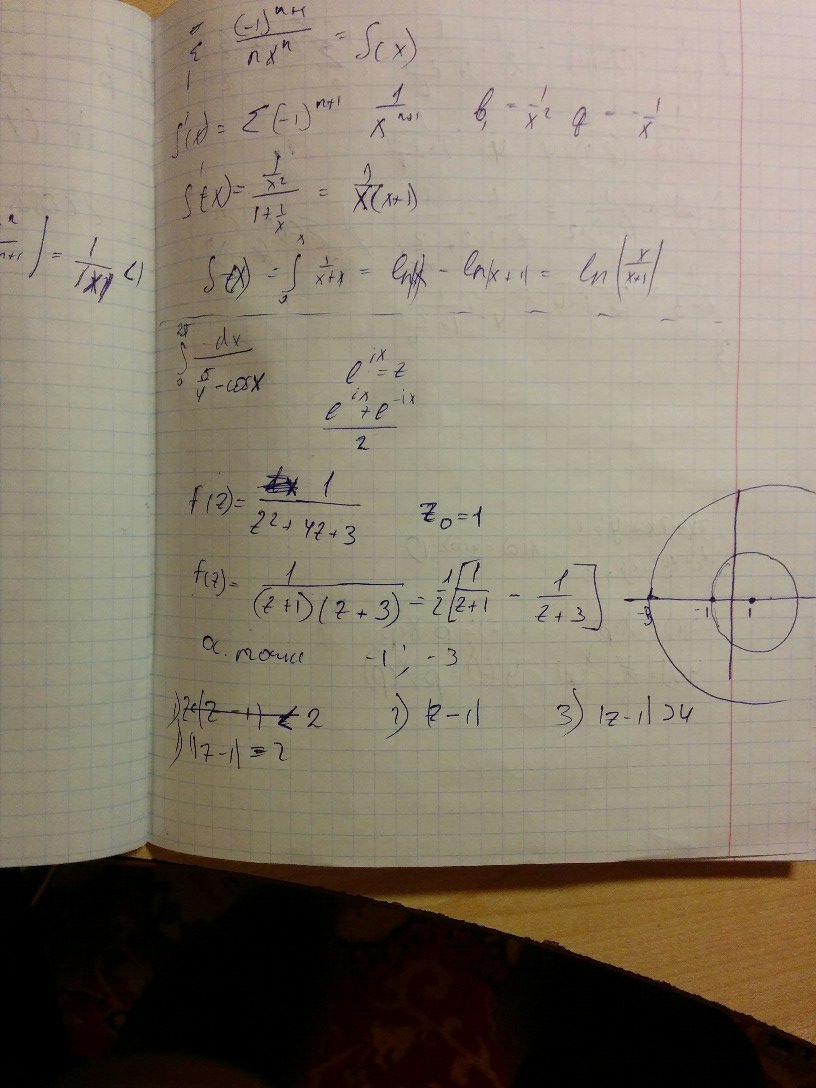 ∞
Σ (-1)^{n+1} / (n x^n) = S(x)
1
S'(x) = Σ (-1)^{n+1} 1/x^{n+1} b₁ = 1/x² q = -1/x
S'(x) = (1/x²) / (1 + 1/x) = 1/x(x+1)
= 1/|x| < 1
= ln|x| - ln|x+1| = ln|x/(x+1)|
2π
∫ dx / (5/4 - cosx)
0
e^{ix} = z
(e^{ix} + e^{-ix}) / 2
f(z) = 1 / (z² + 4z + 3) z₀ = 1
f(z) = 1 / ((z+1)(z+3)) = 1/2 [1/(z+1) - 1/(z+3)]
-3 -1 1
о. точки -1 ; -3
2) |z-1| 3) |z-1| > 4
1) |z-1| = 2